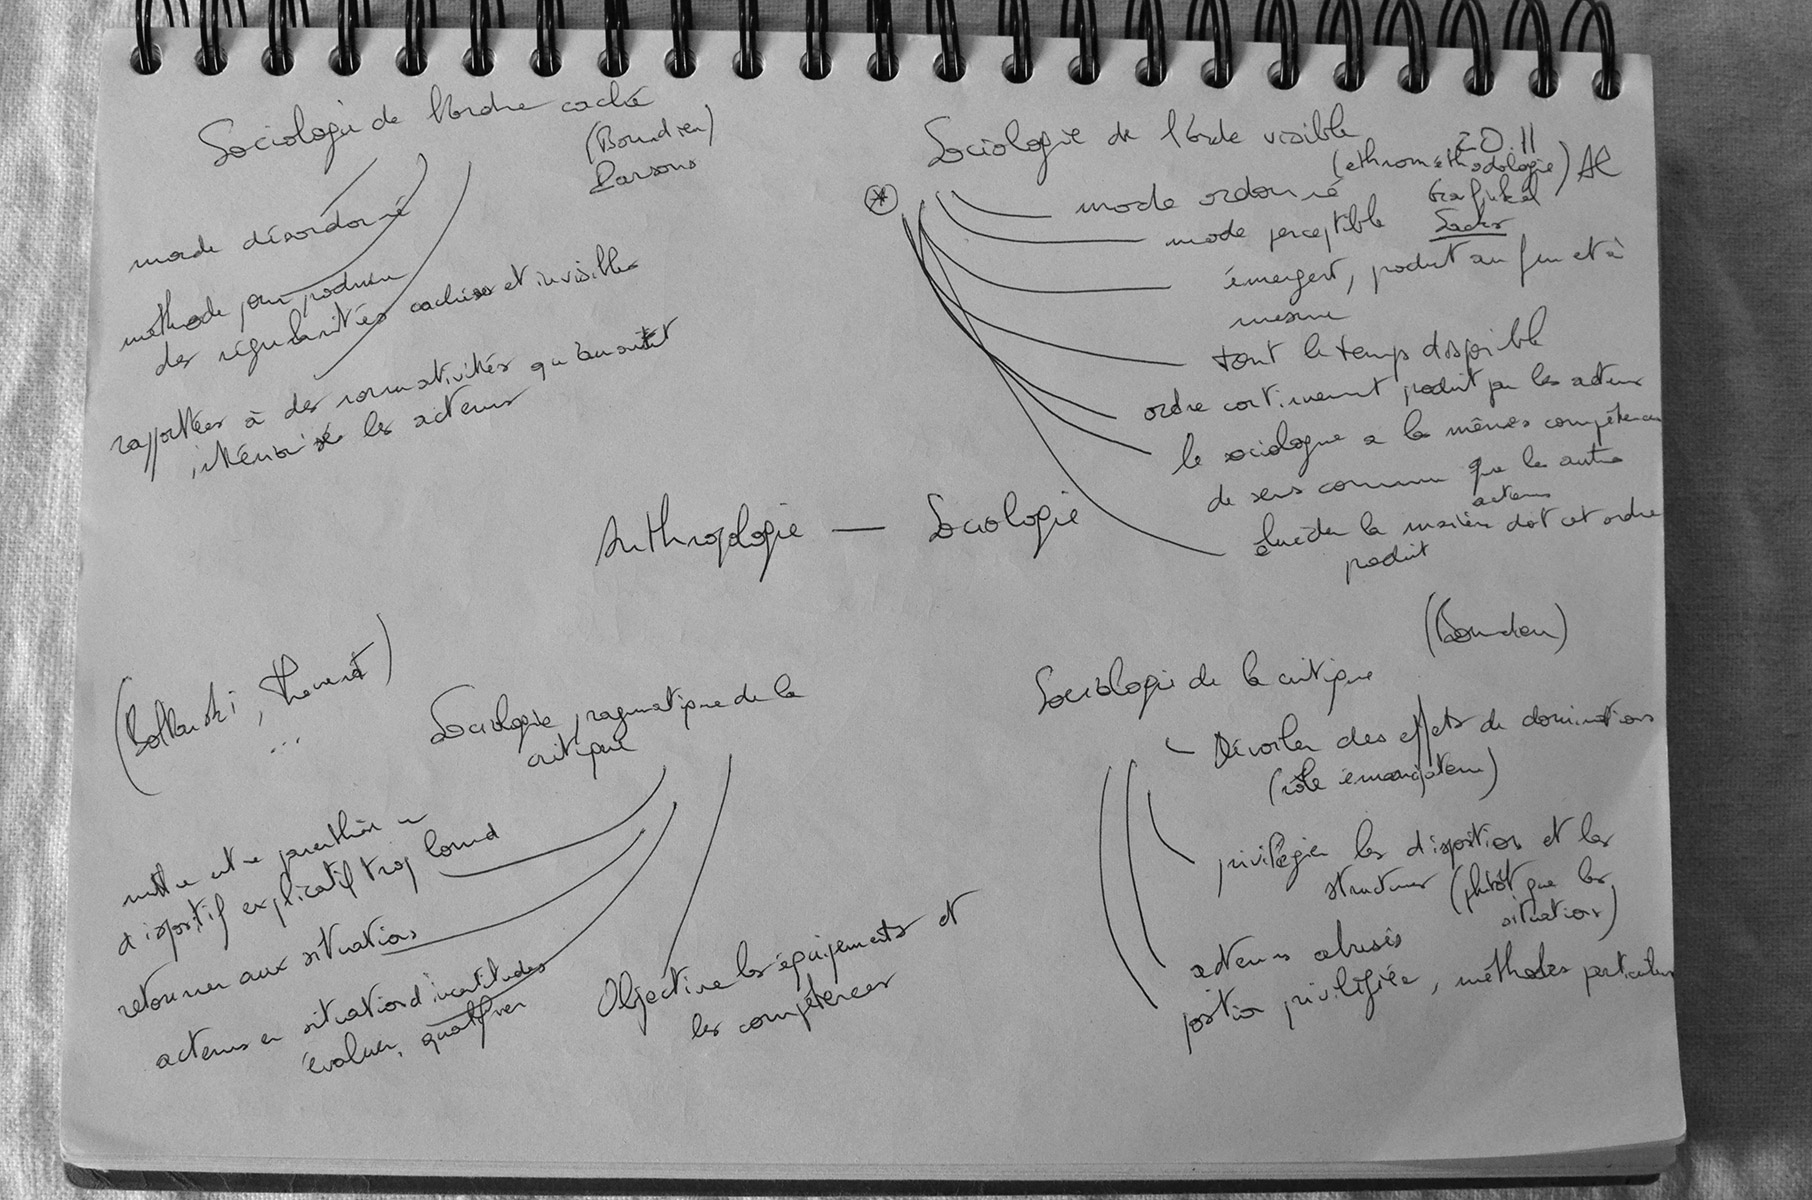 Sociologie de l'ordre caché
(Bourdieu)
Parsons
mode désordonné
méthode pour produire
des régularités cachées et invisibles
rapportées à des normativités qu'auraient
intériorisé les acteurs
Sociologie de l'ordre visible
20.11
(ethnométhodologie) AC
Garfinkel
Sacks
mode ordonné
mode perceptible
émergent, produit au fur et à
mesure
tout le temps disponible
ordre continument produit par les acteurs
le sociologue a les mêmes compétences
de sens commun que les autres
acteurs
élucider la manière dont cet ordre
produit
Anthropologie — Sociologie
(Boltanski, Thévenot)
...
Sociologie pragmatique de la
critique
mettre entre parenthèses un
dispositif explicatif trop lourd
retourner aux situations
acteurs en situation d'incertitudes
évaluer, qualifier
Objectiver les équipements et
les compétences
(Bourdieu)
Sociologie de la critique
Dévoiler des effets de dominations
(rôle émancipateur)
privilégier les dispositions et les
structures (plutôt que les
situations)
acteurs abusés
position privilégiée, méthodes particulières